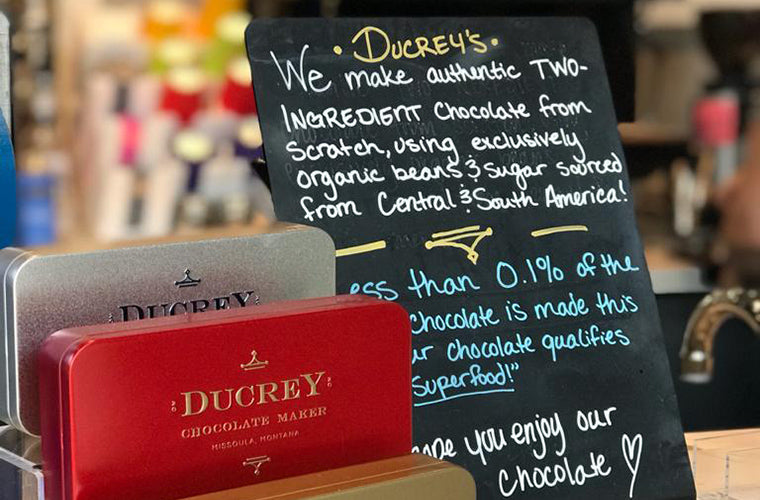 • DUCREY'S •
We make authentic TWO-
INGREDIENT chocolate from
scratch, using exclusively
organic beans & sugar sourced
from Central & South America!
than 0.1% of the
chocolate is made this
chocolate qualifies
Superfood!"
you enjoy our
chocolate ♡
DUCREY
DUCREY
CHOCOLATE MAKER
MISSOULA, MONTANA